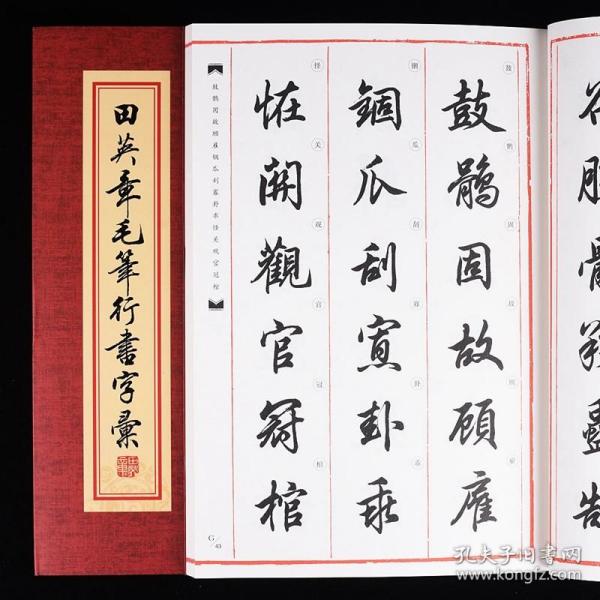 田英章毛筆行書字彙
鼓鶻固故顧雇
錮瓜刮寡卦乖
怪關觀官冠棺
鼓 鹘 固 故 顾 雇
锢 瓜 刮 寡 卦 乖
怪 关 观 官 冠 棺
鼓鹘固故顾雇锢瓜刮寡卦乖怪关观官冠棺
G/43
孔夫子旧书网
www.kongfz.com